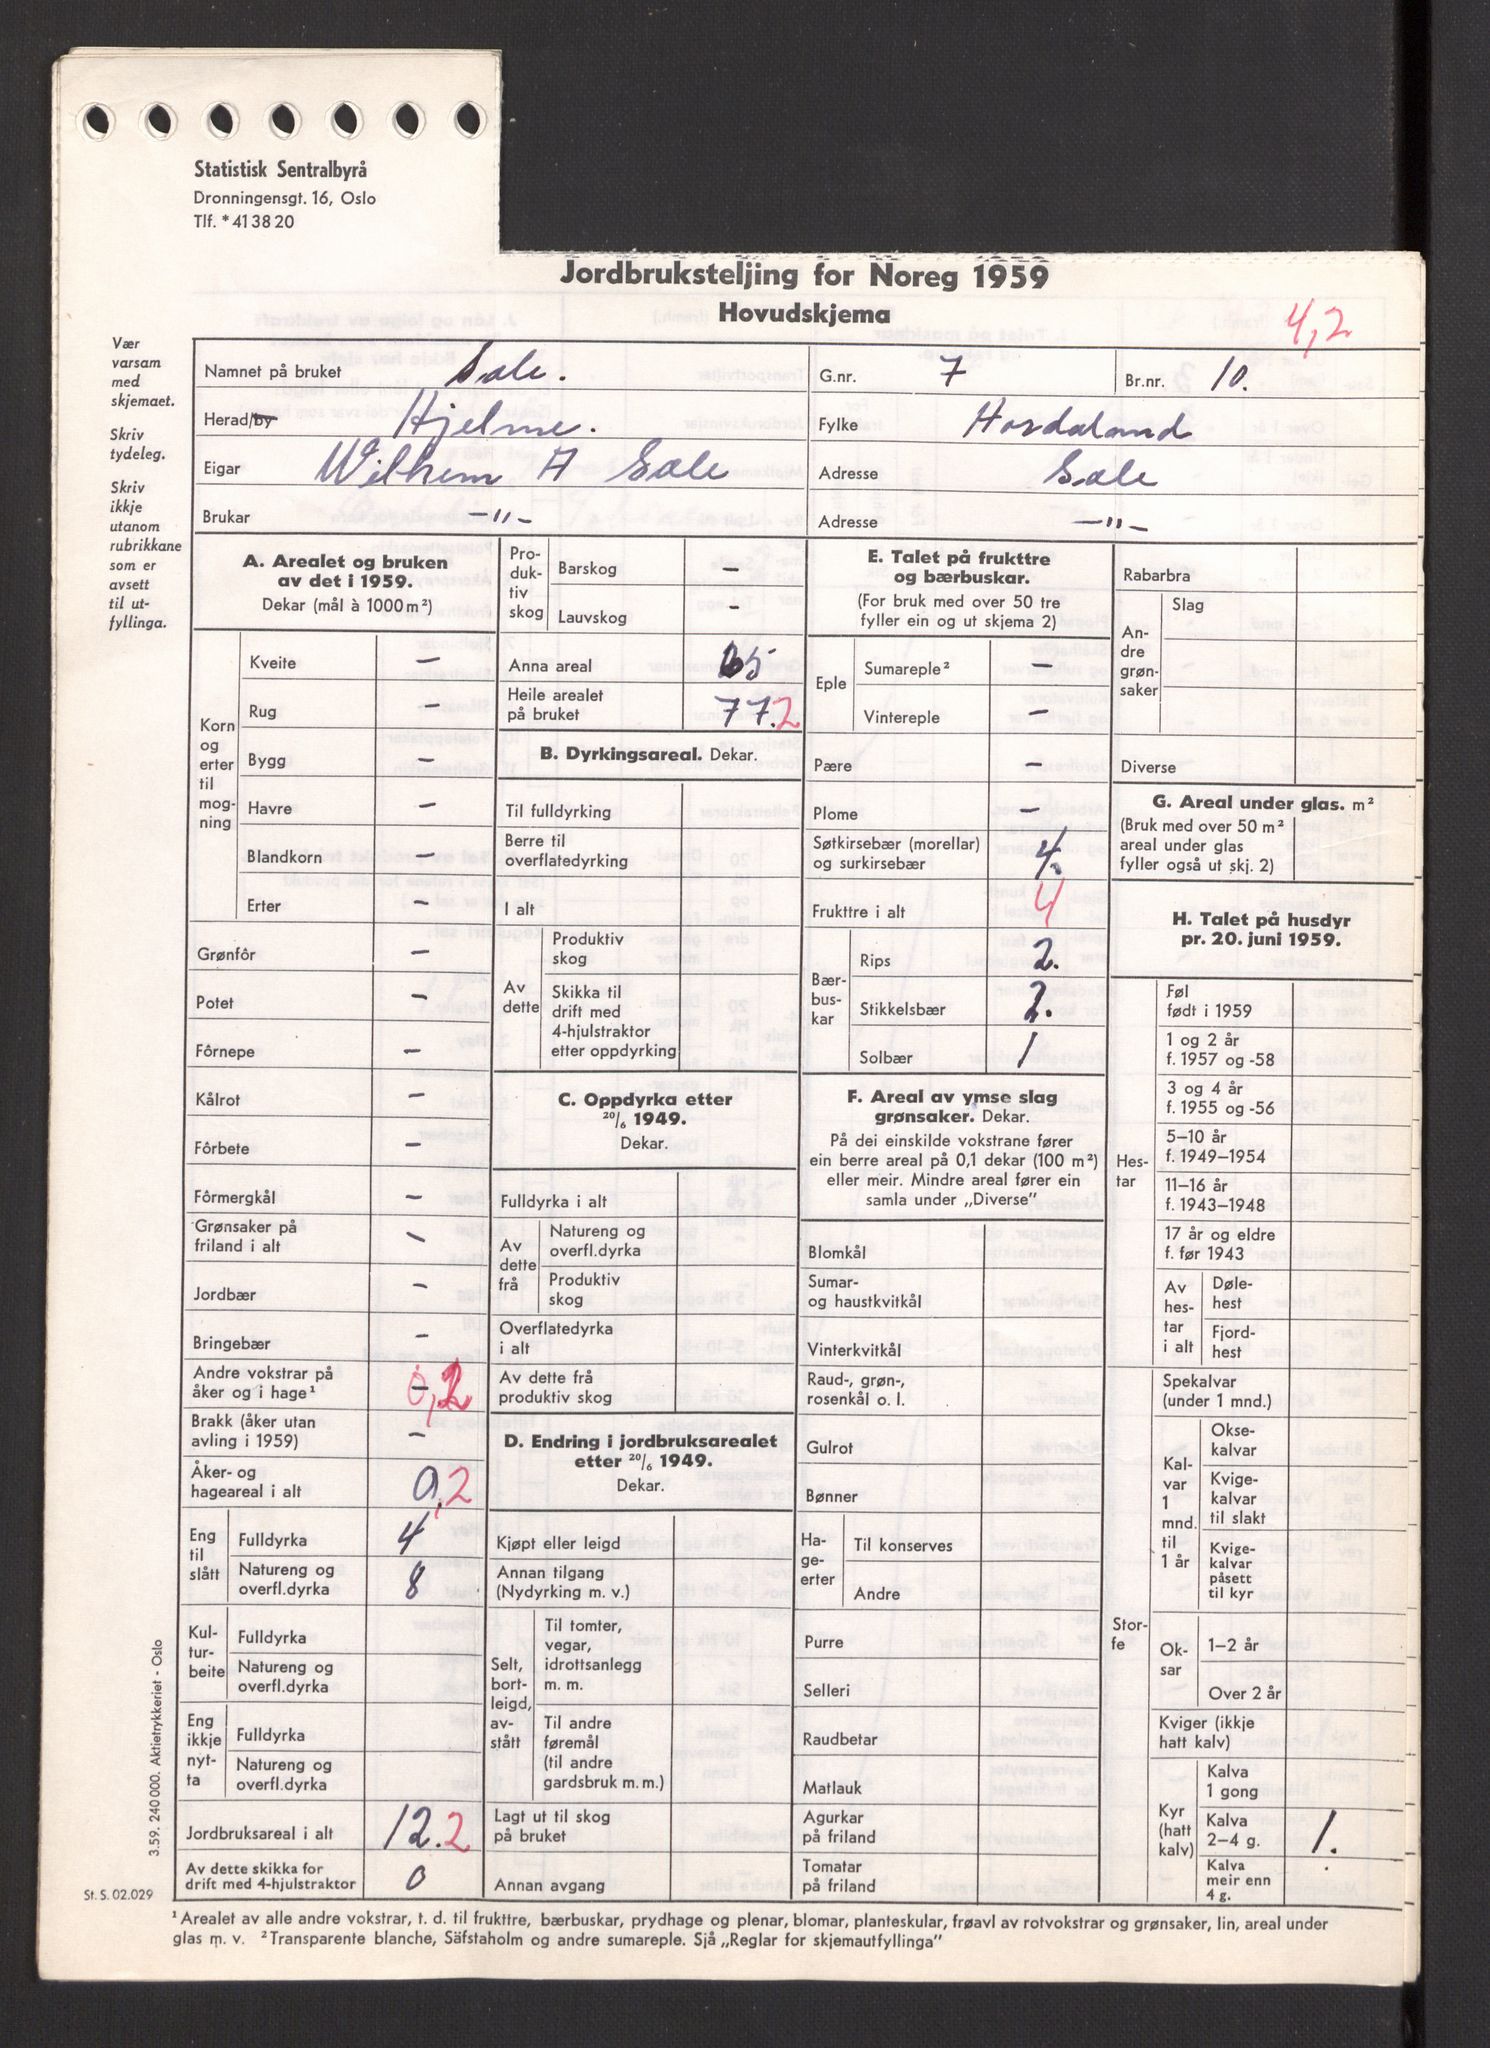 Statistisk Sentralbyrå
Dronningensgt. 16, Oslo
Tlf. *41 38 20
Jordbruksteljing for Noreg 1959
Hovudskjema
4,2
Vær
varsam
med
skjemaet.
Skriv
tydeleg.
Skriv
ikkje
utanom
rubrikkane
som er
avsett
til ut-
fyllinga.
Namnet på bruket Sale. G.nr. 7 Br.nr. 10.
Herad/by Hjelme. Fylke Hordaland
Eigar Wilhem A Sale Adresse Sale
Brukar —"— Adresse —"—
A. Arealet og bruken
av det i 1959.
Dekar (mål à 1000 m²)
Korn
og
erter
til
mog-
ning
Kveite —
Rug —
Bygg —
Havre —
Blandkorn —
Erter —
Grønfôr —
Potet —
Fôrnepe —
Kålrot —
Fôrbete —
Fôrmergkål —
Grønsaker på
friland i alt —
Jordbær —
Bringebær —
Andre vokstrar på
åker og i hage¹ 0,2
Brakk (åker utan
avling i 1959) —
Åker- og
hageareal i alt 0,2
Eng
til
slått
Fulldyrka 4
Natureng og
overfl.dyrka 8
Kul-
tur-
beite
Fulldyrka
Natureng og
overfl.dyrka
Eng
ikkje
nyt-
ta
Fulldyrka
Natureng og
overfl.dyrka
Jordbruksareal i alt 12.2
Av dette skikka for
drift med 4-hjulstraktor 0
Pro-
duk-
tiv
skog
Barskog —
Lauvskog —
Anna areal 65
Heile arealet
på bruket 77.2
B. Dyrkingsareal. Dekar.
Til fulldyrking
Berre til
overflatedyrking
I alt
Av
dette
Produktiv
skog
Skikka til
drift med
4-hjulstraktor
etter oppdyrking
C. Oppdyrka etter
20/6 1949.
Dekar.
Fulldyrka i alt
Av
dette
frå
Natureng og
overfl.dyrka
Produktiv
skog
Overflatedyrka
i alt
Av dette frå
produktiv skog
D. Endring i jordbruksarealet
etter 20/6 1949.
Dekar.
Kjøpt eller leigd
Annan tilgang
(Nydyrking m. v.)
Selt,
bort-
leigd,
av-
stått
Til tomter,
vegar,
idrottsanlegg
m. m.
Til andre
føremål
(til andre
gardsbruk m. m.)
Lagt ut til skog
på bruket
Annan avgang
E. Talet på frukttre
og bærbuskar.
(For bruk med over 50 tre
fyller ein og ut skjema 2)
Eple
Sumareple² —
Vintereple —
Pære —
Plome —
Søtkirsebær (morellar)
og surkirsebær 4.
Frukttre i alt 4
Bær-
bus-
kar
Rips 2.
Stikkelsbær 2.
Solbær 1
F. Areal av ymse slag
grønsaker. Dekar.
På dei einskilde vokstrane fører
ein berre areal på 0,1 dekar (100 m²)
eller meir. Mindre areal fører ein
samla under „Diverse”
Blomkål
Sumar-
og haustkvitkål
Vinterkvitkål
Raud-, grøn-,
rosenkål o. l.
Gulrot
Bønner
Ha-
ge-
erter
Til konserves
Andre
Purre
Selleri
Raudbetar
Matlauk
Agurkar
på friland
Tomatar
på friland
Rabarbra
An-
dre
grøn-
saker
Slag
Diverse
G. Areal under glas. m²
(Bruk med over 50 m²
areal under glas
fyller også ut skj. 2)
H. Talet på husdyr
pr. 20. juni 1959.
Hes-
tar
Føl
født i 1959
1 og 2 år
f. 1957 og -58
3 og 4 år
f. 1955 og -56
5–10 år
f. 1949–1954
11–16 år
f. 1943–1948
17 år og eldre
f. før 1943
Av
hes-
tar
i alt
Døle-
hest
Fjord-
hest
Stor-
fe
Spekalvar
(under 1 mnd.)
Kal-
var
1
mnd.
til
1 år
Okse-
kalvar
Kvige-
kalvar
til slakt
Kvige-
kalvar
påsett
til kyr
Ok-
sar
1–2 år
Over 2 år
Kviger (ikkje
hatt kalv)
Kyr
(hatt
kalv)
Kalva
1 gong
Kalva
2–4 g. 1.
Kalva
meir enn
4 g.
3.59. 240 000. Aktietrykkeriet - Oslo
St. S. 02.029
¹ Arealet av alle andre vokstrar, t. d. til frukttre, bærbuskar, prydhage og plenar, blomar, planteskular, frøavl av rotvokstrar og grønsaker, lin, areal under
glas m. v. ² Transparente blanche, Säfstaholm og andre sumareple. Sjå „Reglar for skjemautfyllinga”